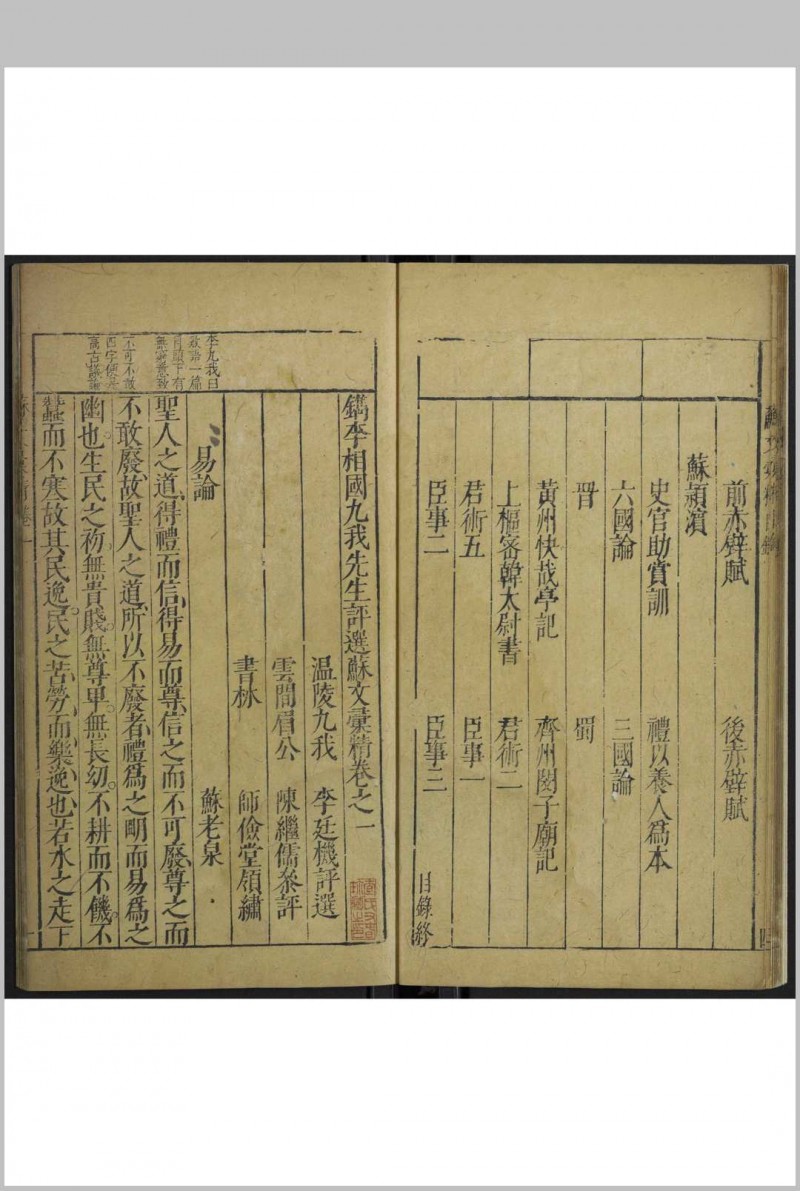 前赤壁賦　後赤壁賦
蘇潁濱
史官助賞訓　禮以養人爲本
六國論　三國論
晋　蜀
黃州快哉亭記　齊州閔子廟記
上樞密韓太尉書　君術二
君術五　臣事一
臣事二　臣事三
目錄終
鐫李相國九我先生評選蘇文彙精卷之一
温陵九我　李廷機評選
雲間眉公　陳繼儒叅評
書林　師儉堂領繡
易論　蘇老泉
李九我曰
無窮意致
不可不敬
聖人之道得禮而信得易而尊信之而不可廢尊之而
不敢廢故聖人之道所以不廢者禮爲之明而易爲之
幽也生民之初無貴賤無尊卑無長幼不耕而不饑不
蠶而不寒故其民逸民之苦勞而樂逸也若水之走下